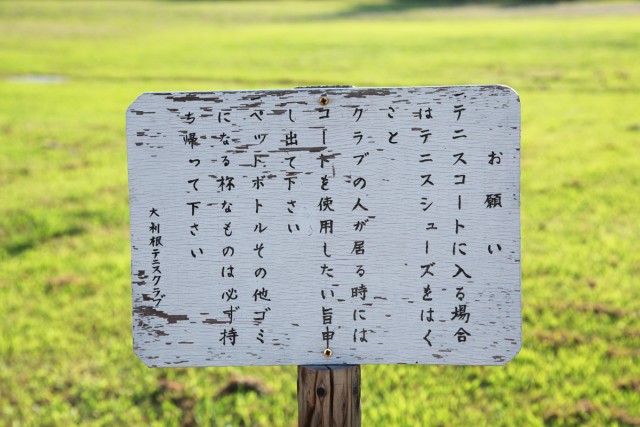 お願い
テニスコートに入る場合
はテニスシューズをはく
こと
クラブの人が居る時には
コートを使用したい旨申
し出て下さい
ペットボトルその他ゴミ
になる様なものは必ず持
ち帰って下さい
大利根テニスクラブ